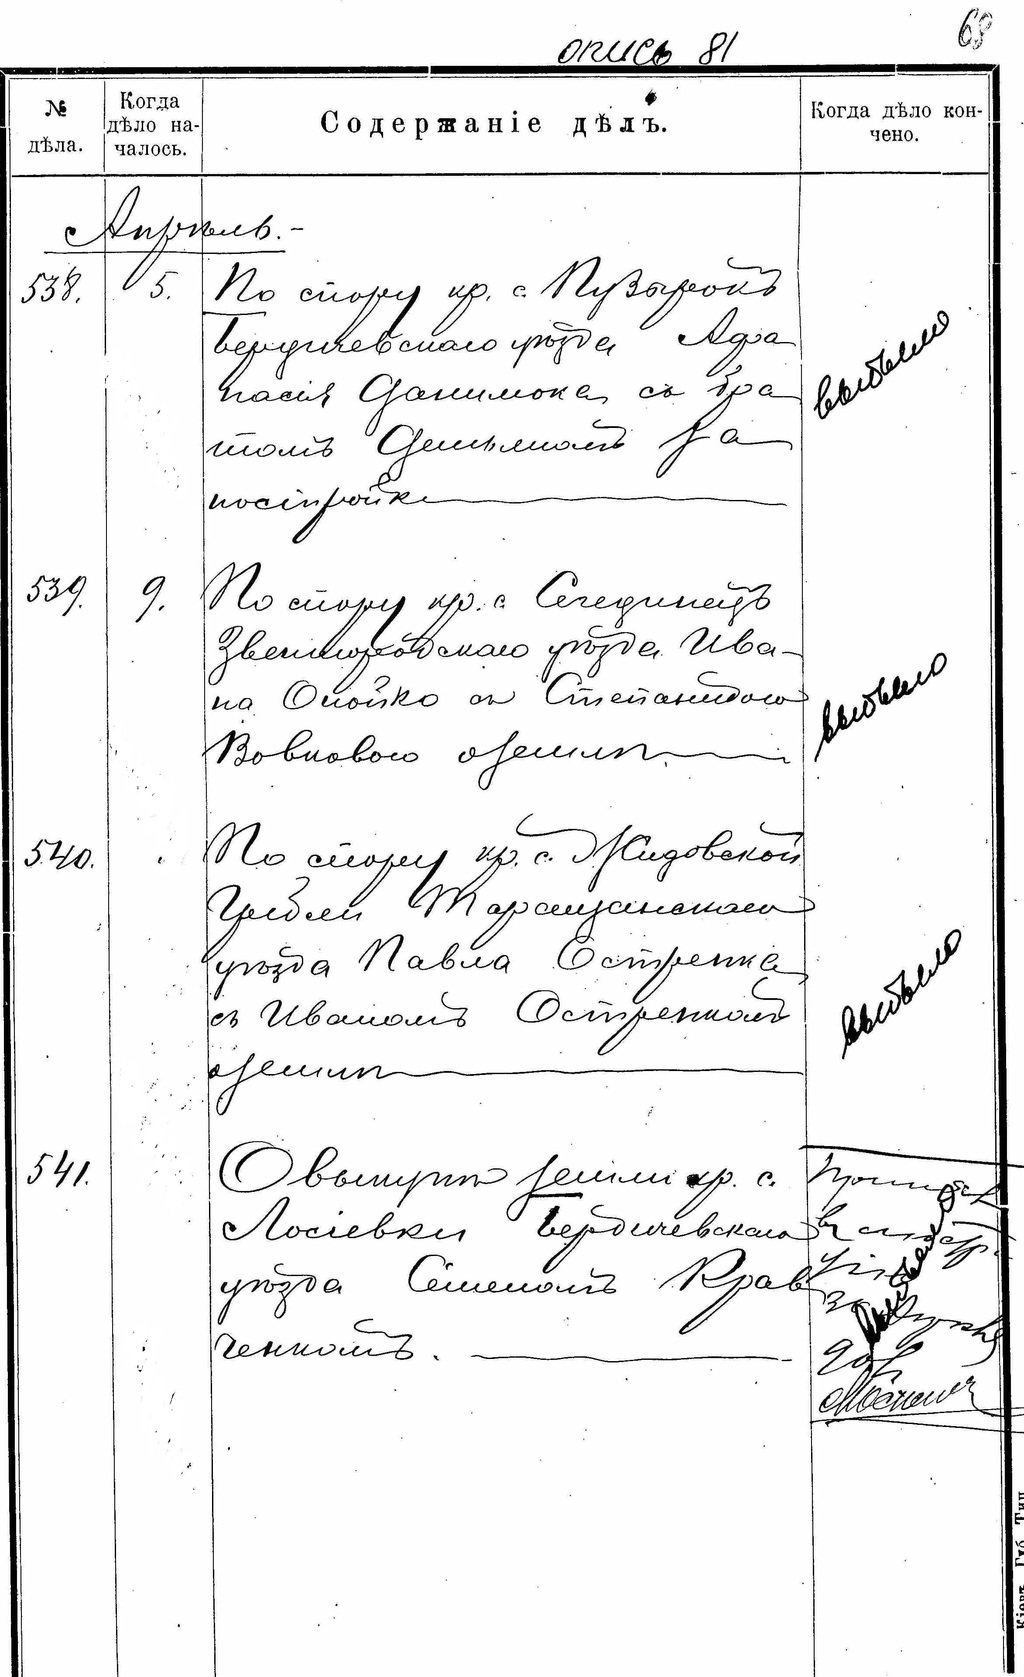 опись 81
69
№ дѣла.
Когда дѣло началось.
Содержаніе дѣлъ.
Когда дѣло кончено.
Апрѣль.-
538. 5. По спору кр. с. Пузырокъ
Бердичевскаго уѣзда Афа
насія Данилюка съ бра
томъ Демьяномъ за
постройки
выбыло
539. 9. По спору кр. с. Сегединецъ
Звенигородскаго уѣзда Ива-
на Опойко съ Степанидою
Вовковою о землѣ.
выбыло
540. По спору кр. с. Жидовской
Гребли Таращанскаго
уѣзда Павла Остренка
съ Иваномъ Остренкомъ
о землѣ
выбыло
541. О выкупѣ земли кр. с.
Лосіевки Бердичевскаго
уѣзда Семеномъ Крав
ченкомъ.
выбыло
Кіевъ. Губ. Тип.